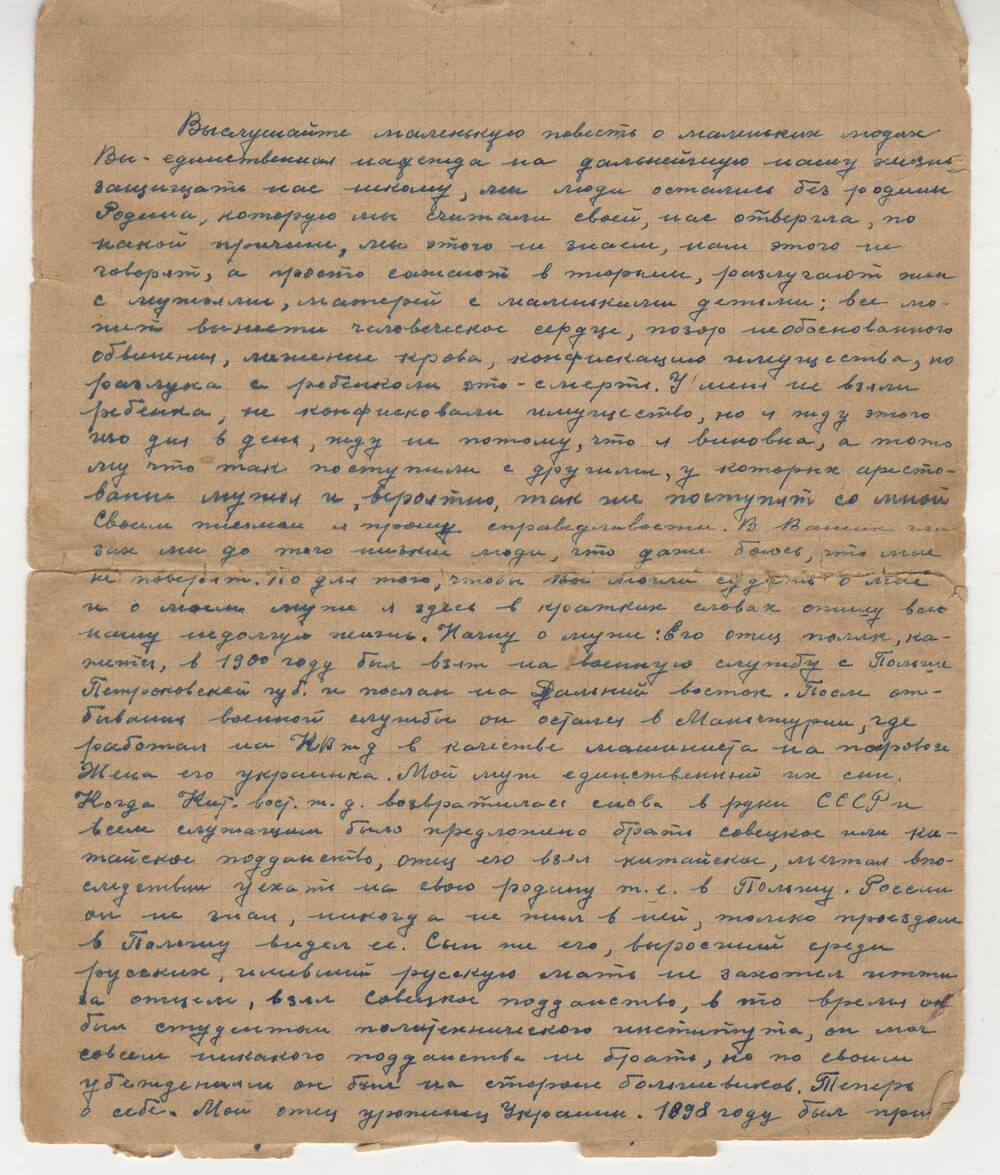 Выслушайте маленькую повесть о маленьких людях
Вы - единственная надежда на дальнейшую нашу жизнь
защищать нас некому, мы люди остались без родины
Родина, которую мы считали своей, нас отвергла, по
какой причине, мы этого не знаем, нам этого не
говорят, а просто сажают в тюрьмы, разлучают жен
с мужьями, матерей с маленькими детьми; все мо-
жит вынести человеческое сердце, позор необоснованного
обвинения, лишение крова, конфискацию имущества, но
разлука с ребенком это - смерть. У меня не взяли
ребенка, не конфисковали имущество, но я жду этого
изо дня в день, жду не потому, что я виновна, а пото
му что так поступили с другими, у которых аресто-
ваны мужья и, вероятно, так же поступят со мной
Своим письмом я прошу справедливости. В Ваших гла-
зах мы до того низкие люди, что даже боюсь, что мне
не поверят. Но для того, чтобы Вы могли судить о мне
и о моем муже я здесь в кратких словах опишу всю
нашу недолгую жизнь. Начну о муже: Его отец поляк, ка-
жется, в 1900 году был взят на военную службу с Польши
Петроковской губ. и послан на Дальний восток. После от-
бывания военной службы он остался в Манчжурии, где
работал на КВжд в качестве машиниста на паровозе
Жена его украинка. Мой муж единственный их сын.
Когда Кит. - вост. ж. д. возвратилась снова в руки СССР и
всем служащим было предложено брать совецкое или ки-
тайское подданство, отец его взял китайское, мечтая впо-
следствии уехать на свою родину т. е. в Польшу. России
он не знал, никогда не жил в ней, только проездом
в Польшу видел ее. Сын же его, выросший среди
русских, имевший русскую мать не захотел итти
за отцем, взял Совецкое подданство, в то время он
был студентом политехнического института, он мог
совсем никакого подданства не брать, но по своим
убеждениям он был на стороне большевиков. Теперь
о себе. Мой отец уроженец Украины. 1898 году был при